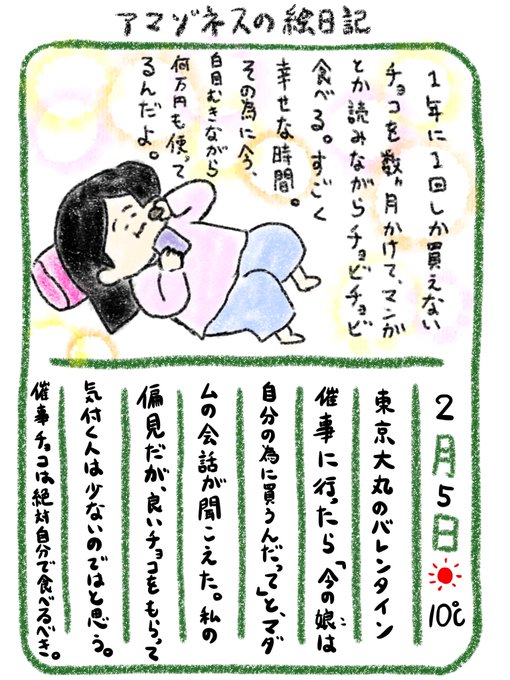 アマゾネスの絵日記
1年に1回しか買えない
チョコを数ヵ月かけて、マンガ
とか読みながらチョビチョビ
食べる。すごく
幸せな時間。
その為に今、
白目むきながら
何万円も使って
るんだよ。
2月5日 10℃
東京大丸のバレンタイン
催事に行ったら「今の娘は
こ
自分の為に買うんだって」と、マダ
ムの会話が聞こえた。私の
偏見だが、良いチョコをもらって
気付く人は少ないのではと思う。
催事チョコは絶対自分で食べるべき。